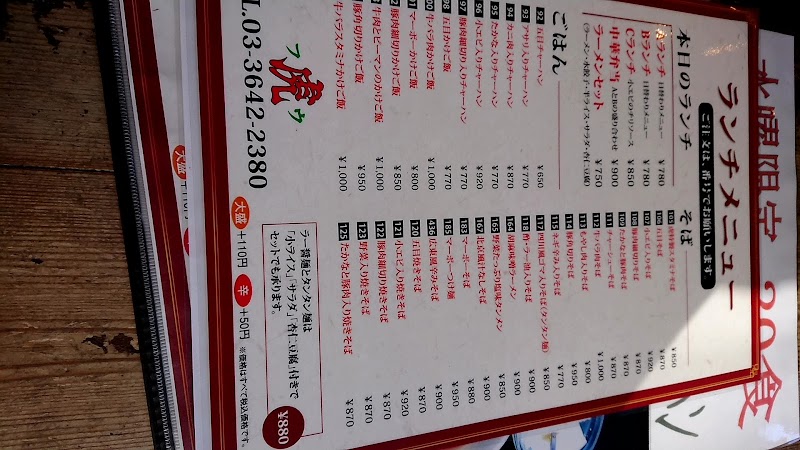 ランチメニュー
ご注文は、番号でお願いします
本日のランチ
Aランチ 日替わりメニュー ¥780
Bランチ 日替わりメニュー ¥780
Cランチ 小エビのチリソース ¥850
中華弁当 AとBの盛り合わせ ¥900
ラーメンセット ¥750
(ラーメン・水餃子・半ライス・サラダ・杏仁豆腐)
ごはん
92 五目チャーハン ¥650
93 アサリ入りチャーハン ¥770
94 カニ肉入りチャーハン ¥870
95 たかな入りチャーハン ¥770
96 小エビ入りチャーハン ¥920
97 豚肉細切り入りチャーハン ¥770
98 五目かけご飯 ¥770
牛バラ肉かけご飯 ¥1,000
マーボーかけご飯 ¥800
豚肉細切りかけご飯 ¥850
牛肉とピーマンのかけご飯 ¥1,000
¥950
牛バラスタミナかけご飯 ¥1,000
そば
スタミナそば ¥850
五目そば ¥870
小エビ入りそば ¥920
108 豚肉細切りそば ¥870
109 たかなと豚肉そば ¥870
111 チャーシューそば ¥870
112 牛バラ肉そば ¥1,000
113 もやし肉入りそば ¥800
114 豚角切りそば ¥950
115 ネギ辛み入りそば ¥770
117 四川風ゴマ入りそば(タンタン麺) ¥850
118 酢ラー油入りそば ¥900
164 胡麻味噌ラーメン ¥900
165 野菜たっぷり塩味タンメン ¥850
167 北京風汁なしそば ¥900
183 マーボーそば ¥880
185 マーボーつけ麺 ¥950
436 広東風辛みそば ¥900
120 五目焼きそば ¥870
121 小エビ入り焼きそば ¥920
122 豚肉細切り焼きそば ¥870
123 野菜入り焼きそば ¥870
125 たかなと豚肉入り焼きそば ¥870
ラー醤麺とタンタン麺は
「小ライス」「サラダ」「杏仁豆腐」付きで
セットでも承ります。
¥880
大盛 +110円 辛 +50円 ※価格はすべて税込価格です。
フ 虎 ウ
EL.03-3642-2380
大盛 +110円
限定 20食